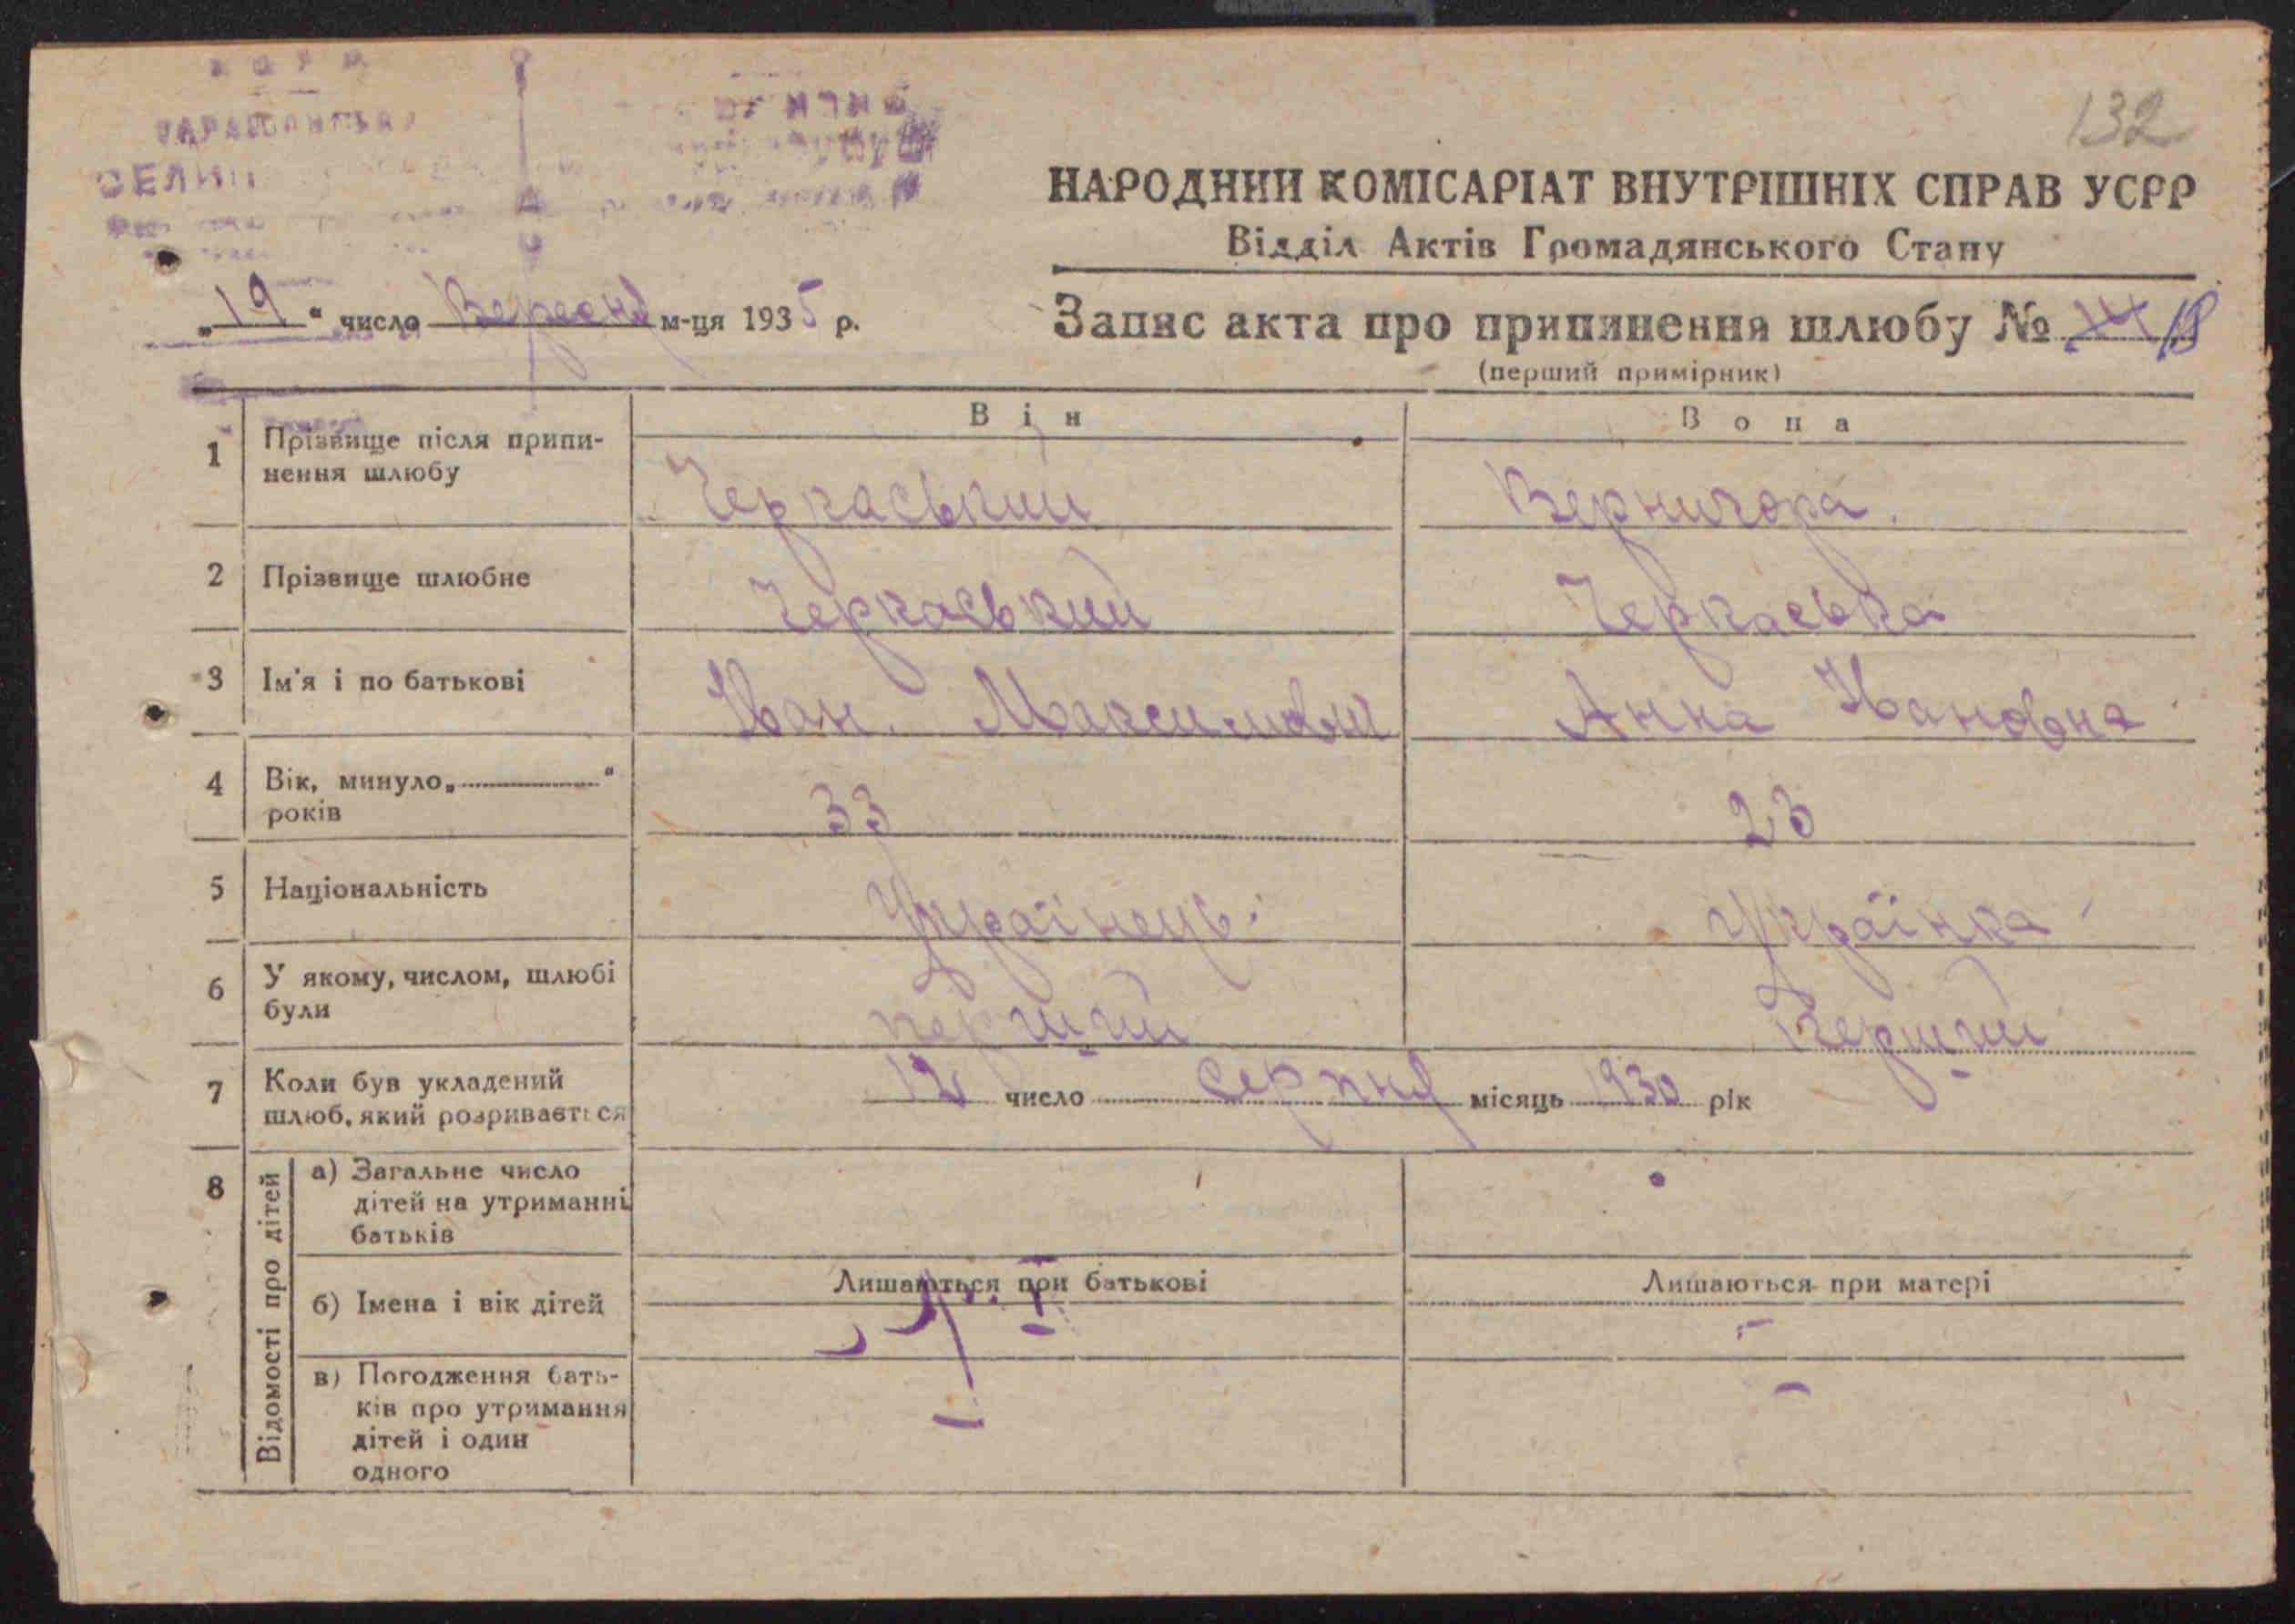 132
НАРОДНИЙ КОМІСАРІАТ ВНУТРІШНІХ СПРАВ УСРР
Відділ Актів Громадянського Стану
„19“ число Вересня м-ця 1935 р.
Запис акта про припинення шлюбу № 18
(перший примірник)
Він Вона
1 Прізвище після припинення шлюбу Черкаський Верничора.
2 Прізвище шлюбне Черкаський Черкаська
3 Ім'я і по батькові Іван Максимович Анна Івановна
4 Вік, минуло „ “ років 33 23
5 Національність Українець Українка
6 У якому, числом, шлюбі були перший Перший
7 Коли був укладений шлюб, який розривається 12 число серпня місяць 1930 рік
8 Відомості про дітей
а) Загальне число дітей на утриманні батьків
Лишаються при батькові Лишаються при матері
б) Імена і вік дітей
в) Погодження батьків про утримання дітей і один одного